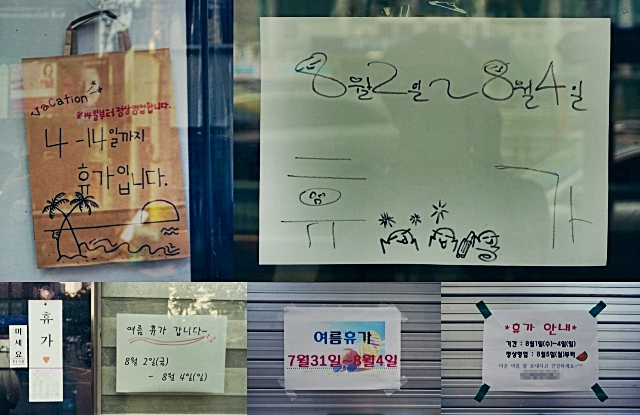 Vacation
4 -14일까지
휴가입니다.
8월2일~8월4일
휴가
미세요
휴가
여름 휴가 갑니다~
8월 2일(금)
- 8월 4일(일)
여름휴가
7월31일~8월4일
*휴가 안내*
기간 : 8월1일(수)~4일(일)
정상영업 : 8월5일(월)부터